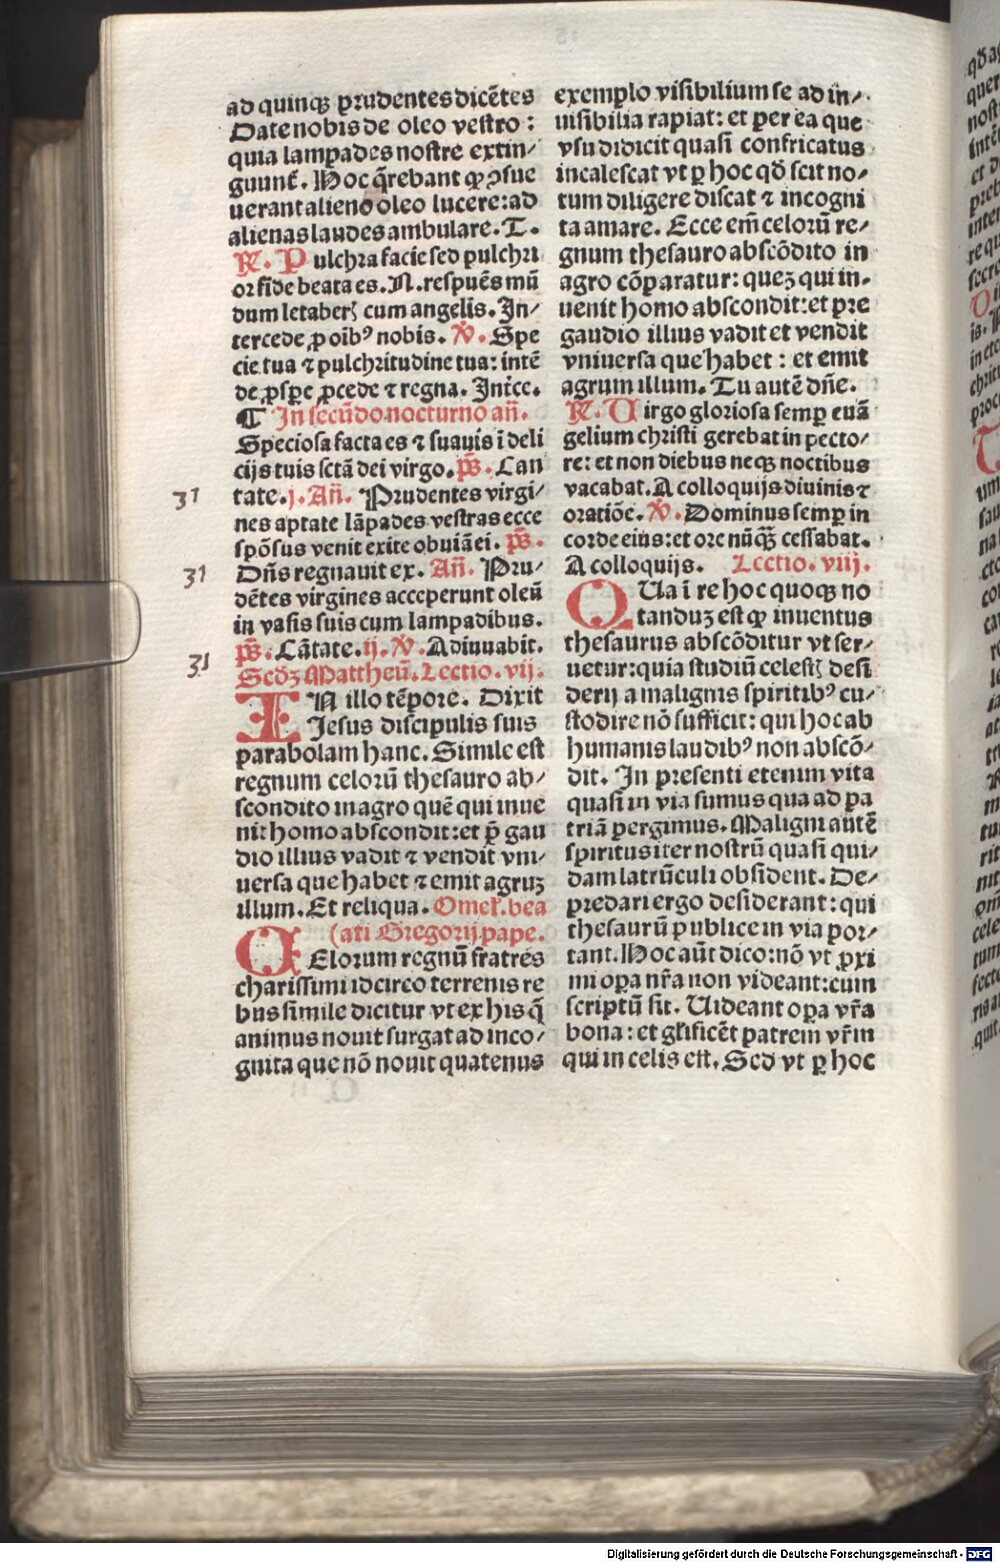 ad quinqꝫ prudentes dicẽtes
Date nobis de oleo vestro :
quia lampades nostre extin⸗
guunt̃. Hoc q̃rebant ꝙ ꝯsue
uerant alieno oleo lucere: ad
alienas laudes ambulare. T.
R̃. Pulchra facie sed pulchri
or fide beata es. N. respuẽs mũ
dum letaberꝭ cum angelis. In⸗
tercede ꝓ oibꝰ nobis. V̇. Spe
cie tua ⁊ pulchritudine tua: intẽ
de ꝓspe ꝓcede ⁊ regna. Int̃ce.
¶ In secũdo nocturno añ.
Speciosa facta es ⁊ suauis ĩ deli
cijs tuis sctã dei virgo. p̃s. Can
31 tate. j. Añ. Prudentes virgi⸗
nes aptate lãpades vestras ecce
spõsus venit exite obuiã ei. p̃s.
31 Dñs regnauit ex. Añ. Pru⸗
dẽtes virgines acceperunt oleũ
in vasis suis cum lampadibus.
p̃s. Cãtate. ij. V̇. Adiuuabit.
31 Scđꝫ Mattheũ. Lectio. vij.
IN illo tẽpore. Dixit
Jesus discipulis suis
parabolam hanc. Simile est
regnum celorũ thesauro ab⸗
scondito in agro quẽ qui inue
nit homo abscondit: et p̃ gau
dio illius vadit ⁊ vendit vni⸗
uersa que habet ⁊ emit agruꝫ
illum. Et reliqua. Omeł. bea
(ati Gregorij pape.
CElorum regnũ fratres
charissimi idcirco terrenis re
bus simile dicitur vt ex his q̃
animus nouit surgat ad inco⸗
gnita que nõ nouit quatenus
exemplo visibilium se ad in⸗
uisibilia rapiat: et per ea que
vsu didicit quasi confricatus
incalescat vt ꝑ hoc qđ scit no⸗
tum diligere discat ⁊ incogni
ta amare. Ecce em̃ celorũ re⸗
gnum thesauro abscõdito in
agro cõparatur: queꝫ qui in⸗
uenit homo abscondit: et pre
gaudio illius vadit et vendit
vniuersa que habet : et emit
agrum illum. Tu autẽ dñe.
R̃. Virgo gloriosa semꝑ euã
gelium christi gerebat in pecto⸗
re: et non diebus neqꝫ noctibus
vacabat. A colloquijs diuinis ⁊
oratiõe. V̇. Dominus semꝑ in
corde eius: et ore nũqꝫ̃ cessabat.
A colloquijs. Lectio. viij.
QUa ĩ re hoc quoqꝫ no
tanduꝫ est ꝙ inuentus
thesaurus abscõditur vt ser⸗
uetur: quia studiũ celestꝭ desi
derij a malignis spiritibꝰ cu⸗
stodire nõ sufficit: qui hoc ab
humanis laudibꝰ non abscõ⸗
dit. In presenti etenim vita
quasi in via sumus qua ad pa
triã pergimus. Maligni autẽ
spiritus iter nostrũ quasi qui⸗
dam latrũculi obsident. De⸗
predari ergo desiderant: qui
thesaurũ publice in via por⸗
tant. Hoc aũt dico: nõ vt ꝓxi
mi oꝑa nr̃a non videant: cum
scriptũ sit. Uideant oꝑa vr̃a
bona : et głificẽt patrem vr̃m
qui in celis est. Sed vt ꝑ hoc
Digitalisierung gefördert durch die Deutsche Forschungsgemeinschaft - DFG